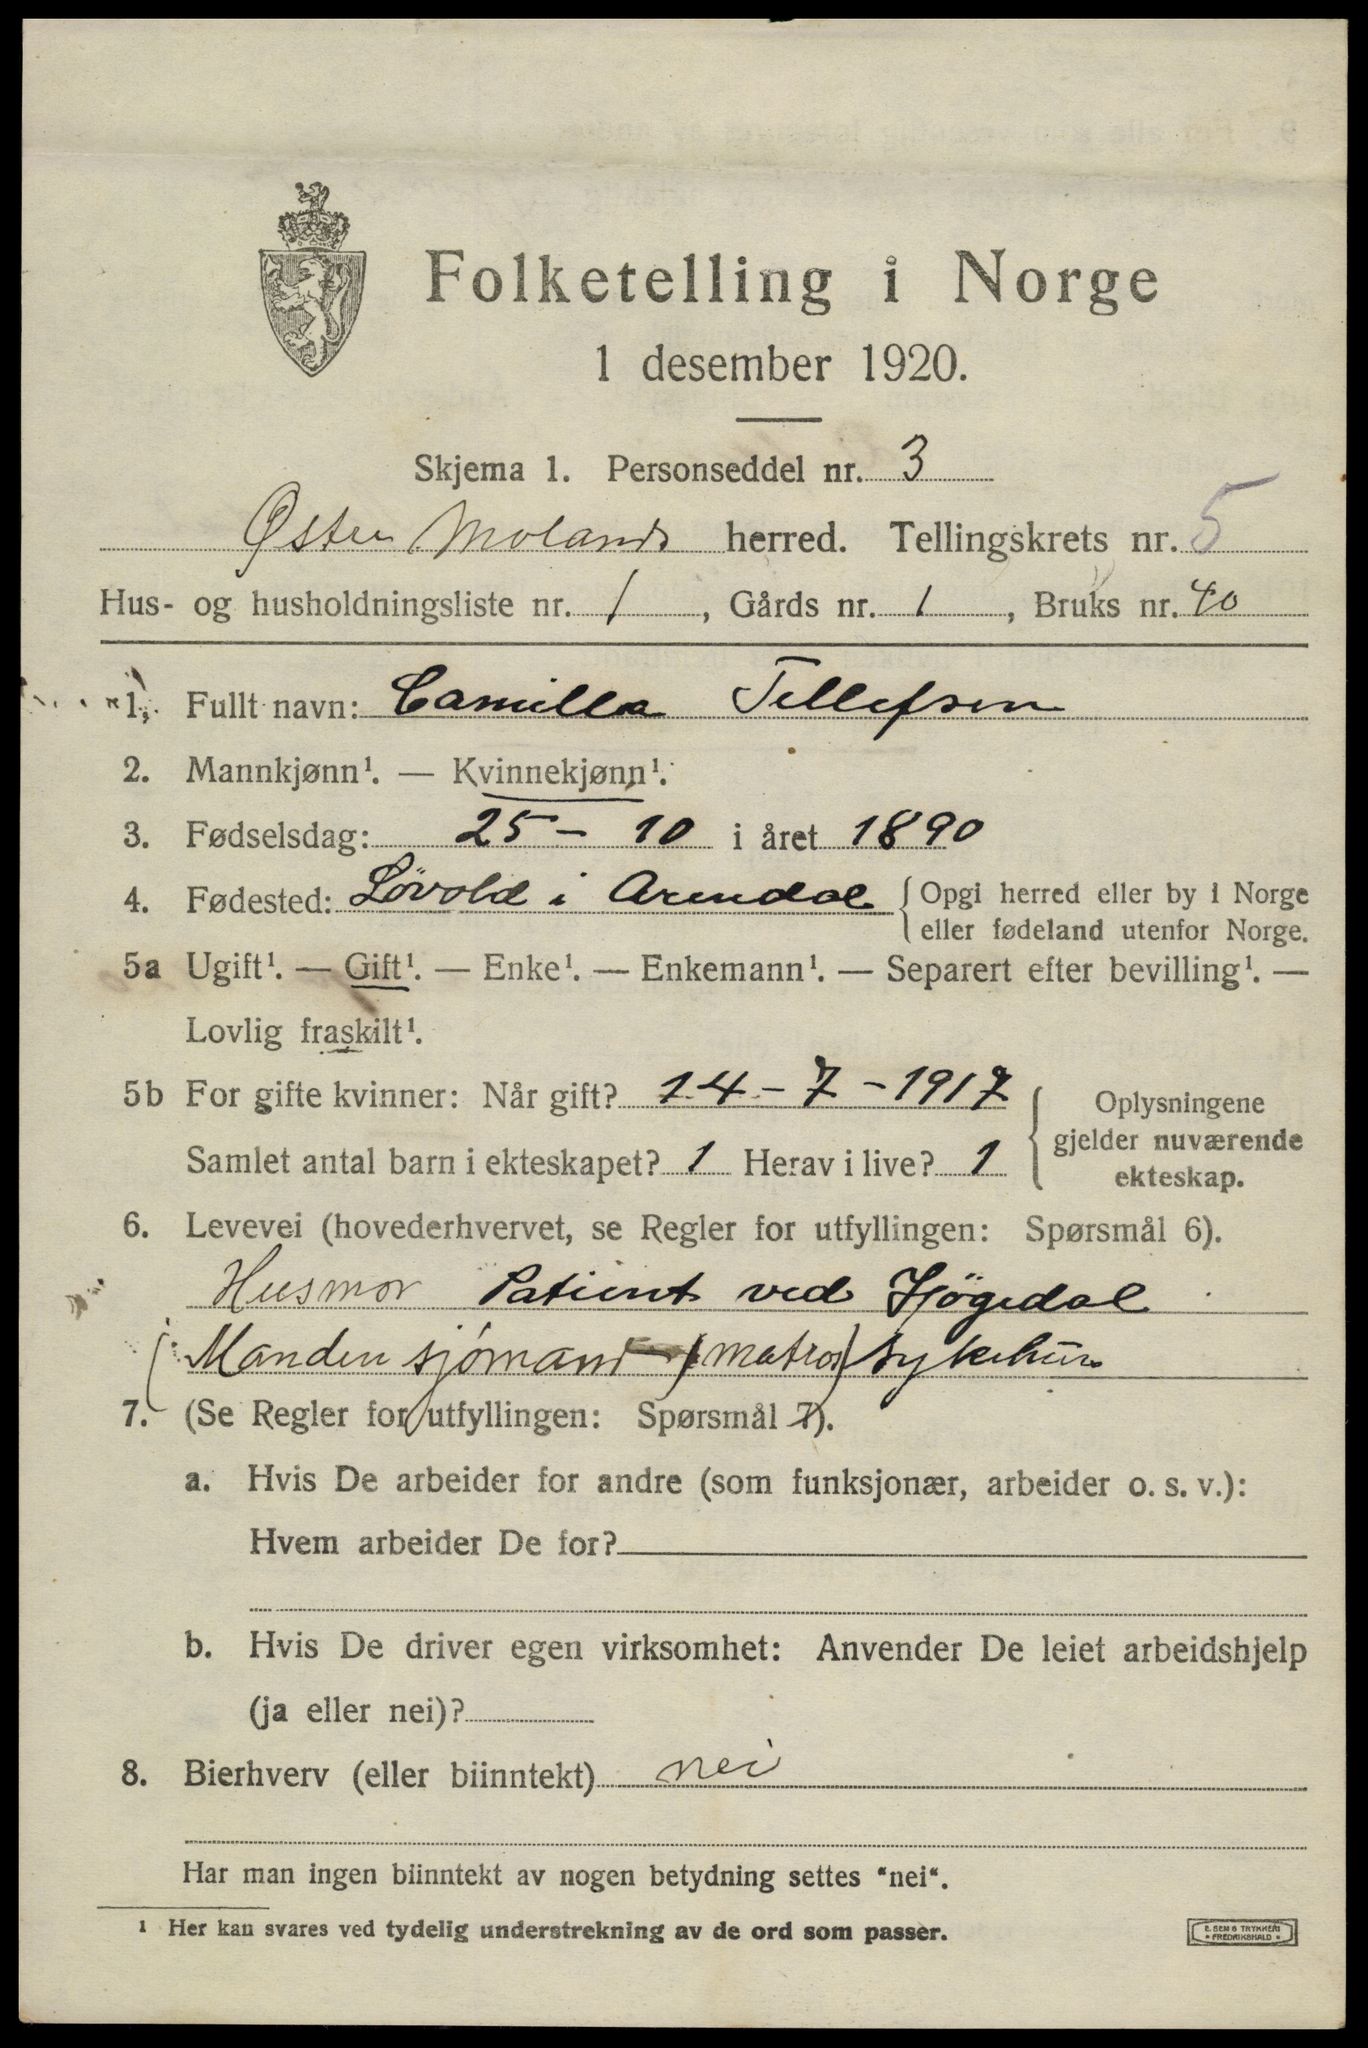 Folketelling i Norge
1 desember 1920.
Skjema 1. Personseddel nr. 3
Øster Molands herred. Tellingskrets nr. 5
Hus- og husholdningsliste nr. 1, Gårds nr. 1, Bruks nr. 40
1. Fullt navn: Camilla Tellefsen
2. Mannkjønn¹. — Kvinnekjønn¹.
3. Fødselsdag: 25 - 10 i året 1890
4. Fødested: Lövold i Arendal { Opgi herred eller by i Norge
eller fødeland utenfor Norge.
5a Ugift¹. — Gift¹. — Enke¹. — Enkemann¹. — Separert efter bevilling¹. —
Lovlig fraskilt¹.
5b For gifte kvinner: Når gift? 14 - 7 - 1917
Samlet antal barn i ekteskapet? 1 Herav i live? 1
{ Oplysningene
gjelder nuværende
ekteskap.
6. Levevei (hovederhvervet, se Regler for utfyllingen: Spørsmål 6).
Husmor Patient ved
(Manden sjömand (matros) sykehus
7. (Se Regler for utfyllingen: Spørsmål 7).
a. Hvis De arbeider for andre (som funksjonær, arbeider o. s. v.):
Hvem arbeider De for?
b. Hvis De driver egen virksomhet: Anvender De leiet arbeidshjelp
(ja eller nei)?
8. Bierhverv (eller biinntekt) nei
Har man ingen biinntekt av nogen betydning settes "nei".
¹ Her kan svares ved tydelig understrekning av de ord som passer.
E. SEM'S TRYKKERI
FREDRIKSHALD